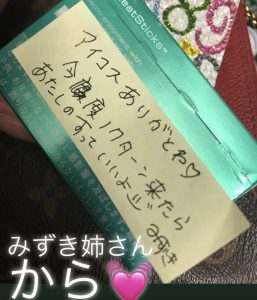 eatSticks™
アイコスありがとね♡
今度ノクターン来たら
あたしのすっていいよ
みずき
みずき姉さん
から💓